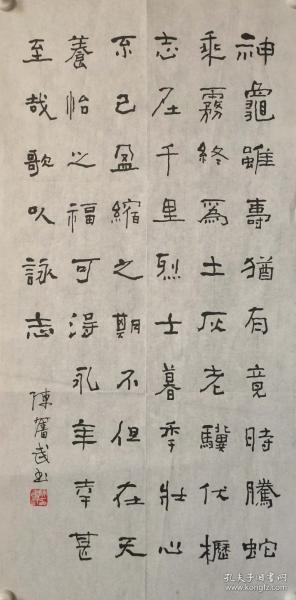 神龜雖壽猶有竟時騰蛇
乘霧終為土灰老驥伏櫪
志在千里烈士暮年壯心
不已盈縮之期不但在天
養怡之福可得永年幸甚
至哉歌以詠志
陳奮武書
孔夫子旧书网